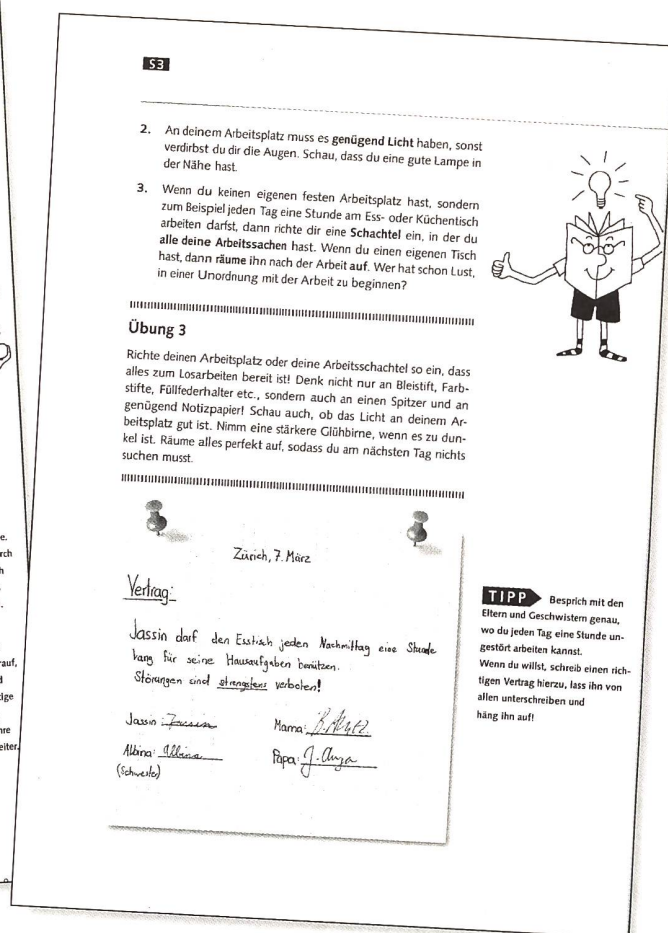 S3
2. An deinem Arbeitsplatz muss es genügend Licht haben, sonst
verdirbst du dir die Augen. Schau, dass du eine gute Lampe in
der Nähe hast.
3. Wenn du keinen eigenen festen Arbeitsplatz hast, sondern
zum Beispiel jeden Tag eine Stunde am Ess- oder Küchentisch
arbeiten darfst, dann richte dir eine Schachtel ein, in der du
alle deine Arbeitssachen hast. Wenn du einen eigenen Tisch
hast, dann räume ihn nach der Arbeit auf. Wer hat schon Lust,
in einer Unordnung mit der Arbeit zu beginnen?
Übung 3
Richte deinen Arbeitsplatz oder deine Arbeitsschachtel so ein, dass
alles zum Losarbeiten bereit ist! Denk nicht nur an Bleistift, Farb-
stifte, Füllfederhalter etc., sondern auch an einen Spitzer und an
genügend Notizpapier! Schau auch, ob das Licht an deinem Ar-
beitsplatz gut ist. Nimm eine stärkere Glühbirne, wenn es zu dun-
kel ist. Räume alles perfekt auf, sodass du am nächsten Tag nichts
suchen musst.
Zürich, 7. März
Vertrag:
Jassin darf den Esstisch jeden Nachmittag eine Stunde
lang für seine Hausaufgaben benützen.
Störungen sind strengstens verboten!
Jassin: Jassin Mama:
Albina: Albina Papa:
(Schwester)
TIPP Besprich mit den
Eltern und Geschwistern genau,
wo du jeden Tag eine Stunde un-
gestört arbeiten kannst.
Wenn du willst, schreib einen rich-
tigen Vertrag hierzu, lass ihn von
allen unterschreiben und
häng ihn auf!